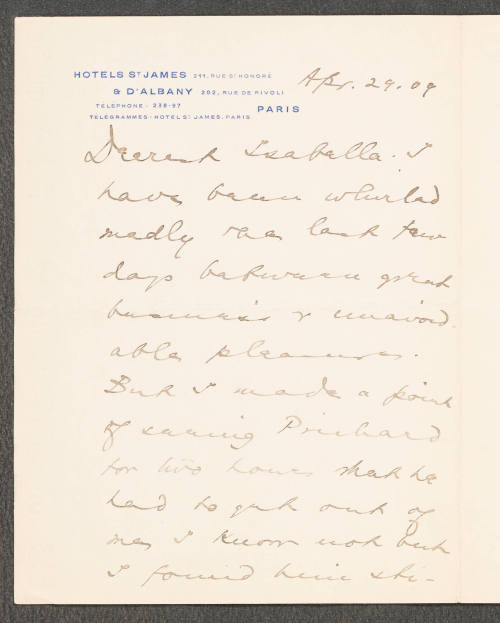 HOTELS ST JAMES 211, RUE ST HONORÉ
& D'ALBANY 202, RUE DE RIVOLI
TELEPHONE - 238-97
PARIS
TELEGRAMMES - HOTEL ST JAMES. PARIS
Apr. 29. 09
Dearest Isabella. I
have been whirled
madly the last few
days between great
business & unavoid-
able pleasures.
But I made a point
of seeing Prichard
for two hours What he
had to get out of
me I know not but
I found him sti-